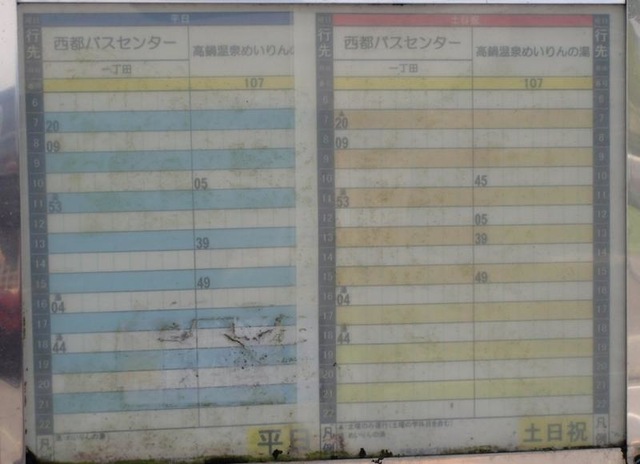 平日
行先
西都バスセンター
高鍋温泉めいりんの
一丁田
107
6
7 20
8 09
9
10 05
11 53
12
13 39
14
15 49
16 04
17
18 44
19
20
21
22
平日
土日祝
行先
西都バスセンター
高鍋温泉めいりんの湯
一丁田
107
6
7 20
8 09
9
10 45
11 53
12 05
13 39
14
15 49
16 04
17
18 44
19
20
21
22
凡例
土日祝